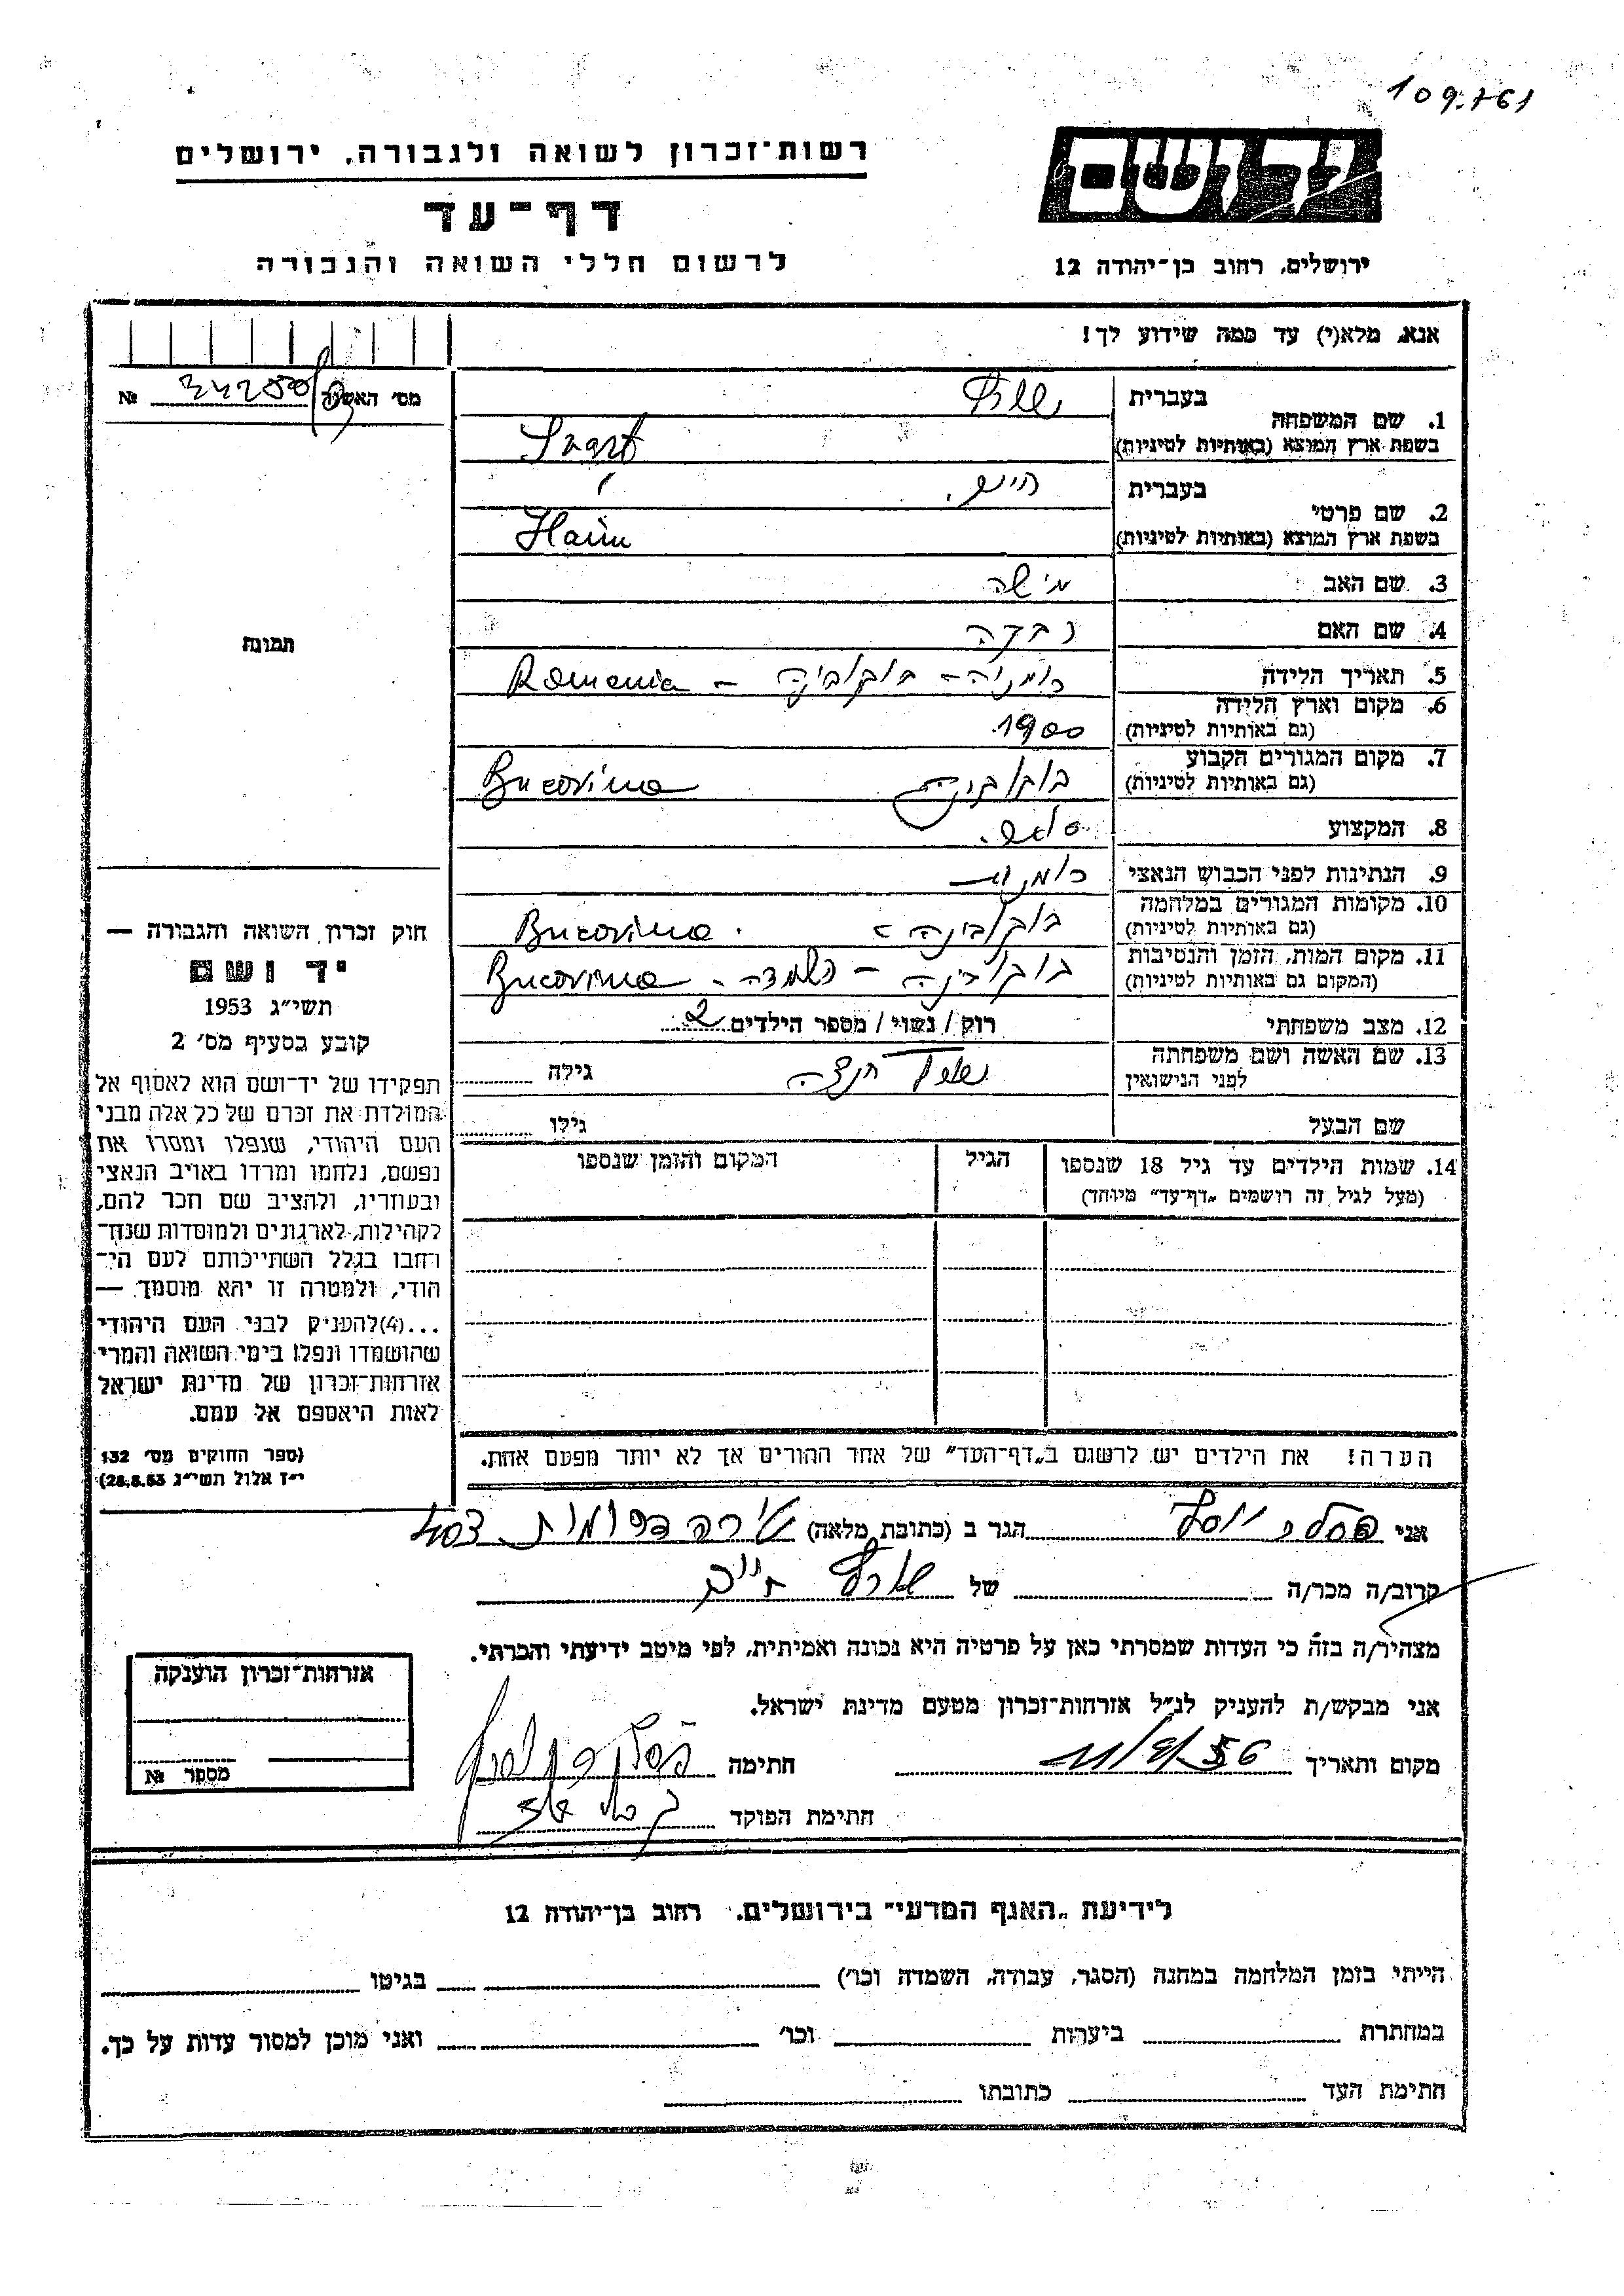 109.761
יד ושם
רשות-זכרון לשואה ולגבורה, ירושלים
דף-עד
לרשום חללי השואה והגבורה
ירושלים, רחוב בן-יהודה 12
אנא, מלא(י) עד כמה שידוע לך!
מס' האשרה № 34250
1. שם המשפחה
בעברית
בשפת ארץ המוצא (באותיות לטיניות)
2. שם פרטי
בעברית
בשפת ארץ המוצא (באותיות לטיניות) Haim
3. שם האב
4. שם האם רבקה
5. תאריך הלידה רומניה - בוקובינה - Romania
6. מקום וארץ הלידה 1900
(גם באותיות לטיניות)
7. מקום המגורים הקבוע בוקובינה Bucovina
(גם באותיות לטיניות)
8. המקצוע
9. הנתינות לפני הכבוש הנאצי
10. מקומות המגורים במלחמה בוקובינה - Bucovina
(גם באותיות לטיניות)
11. מקום המות, הזמן והנסיבות בוקובינה - השמדה - Bucovina
(המקום גם באותיות לטיניות)
12. מצב משפחתי רווק / נשוי / מספר הילדים 2
13. שם האשה ושם משפחתה
לפני הנישואין גילה
שם הבעל גילו
14. שמות הילדים עד גיל 18 שנספו הגיל המקום והזמן שנספו
(מעל לגיל זה רושמים „דף-עד" מיוחד)
הערה! את הילדים יש לרשום ב„דף-העד" של אחד ההורים אך לא יותר מפעם אחת.
תמונה
חוק זכרון השואה והגבורה —
יד ושם
תשי"ג 1953
קובע בסעיף מס' 2
תפקידו של יד-ושם הוא לאסוף אל
המולדת את זכרם של כל אלה מבני
העם היהודי, שנפלו ומסרו את
נפשם, נלחמו ומרדו באויב הנאצי
ובעוזריו, ולהציב שם וזכר להם,
לקהילות, לארגונים ולמוסדות שנח-
רחבו בגלל השתייכותם לעם הי-
הודי, ולמטרה זו יהא מוסמך —
...(4) להעניק לבני העם היהודי
שהושמדו ונפלו בימי השואה והמרי
אזרחות-זכרון של מדינת ישראל
לאות היאספם אל עמם.
(ספר החוקים מס' 132
י"ז אלול תשי"ג 28.8.53)
אני יוסף הגר ב (כתובת מלאה)
קרוב/ה מכר/ה של חיים
מצהיר/ה בזה כי העדות שמסרתי כאן על פרטיה היא נכונה ואמיתית, לפי מיטב ידיעתי והכרתי.
אני מבקש/ת להעניק לנ"ל אזרחות-זכרון מטעם מדינת ישראל.
מקום ותאריך חתימה
חתימת הפוקד
אזרחות-זכרון הוענקה
מספר №
לידיעת „האגף המדעי" בירושלים, רחוב בן-יהודה 12
הייתי בזמן המלחמה במחנה (הסגר, עבודה, השמדה וכו') בגיטו
במחתרת ביערות וכו' ואני מוכן למסור עדות על כך.
חתימת העד כתובתו